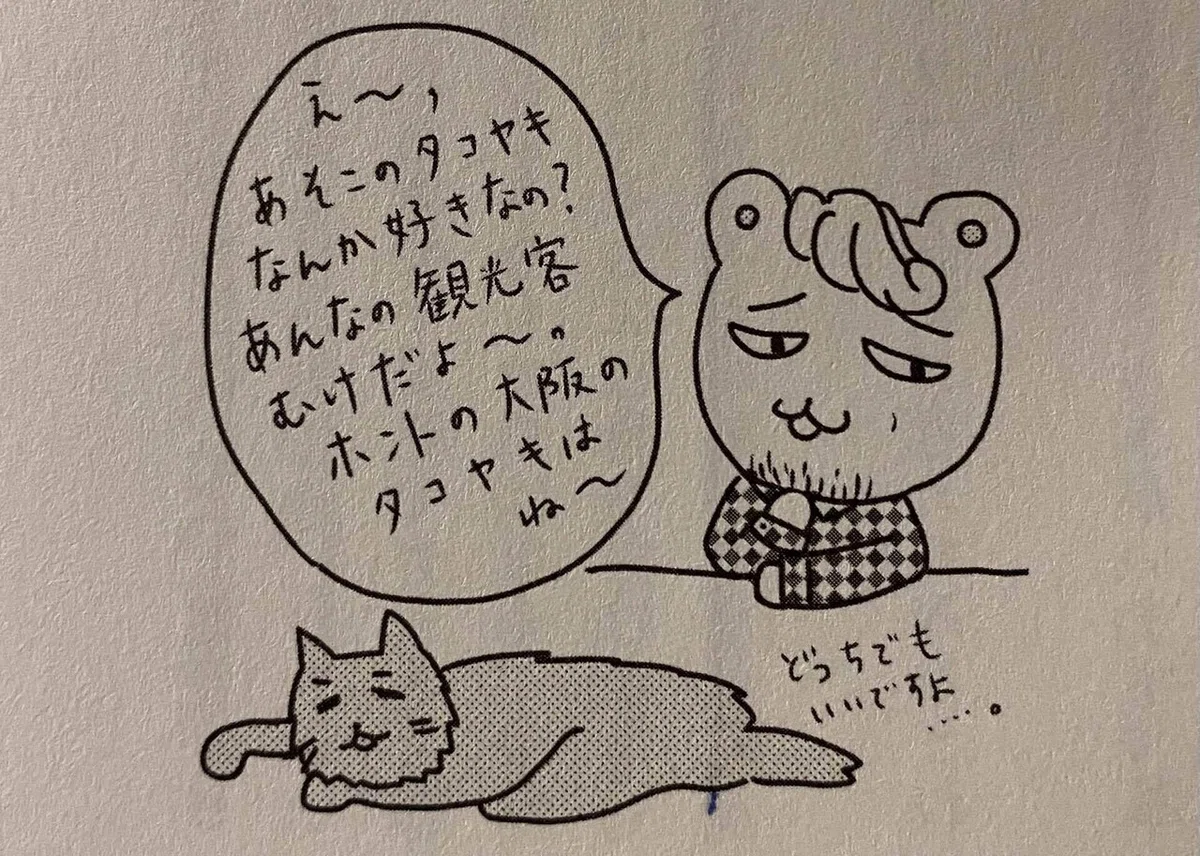 え〜,
あそこのタコヤキ
なんか好きなの?
あんなの観光客
むけだよ〜。
ホントの大阪の
タコヤキは
ね〜
どっちでも
いいですよ
……。